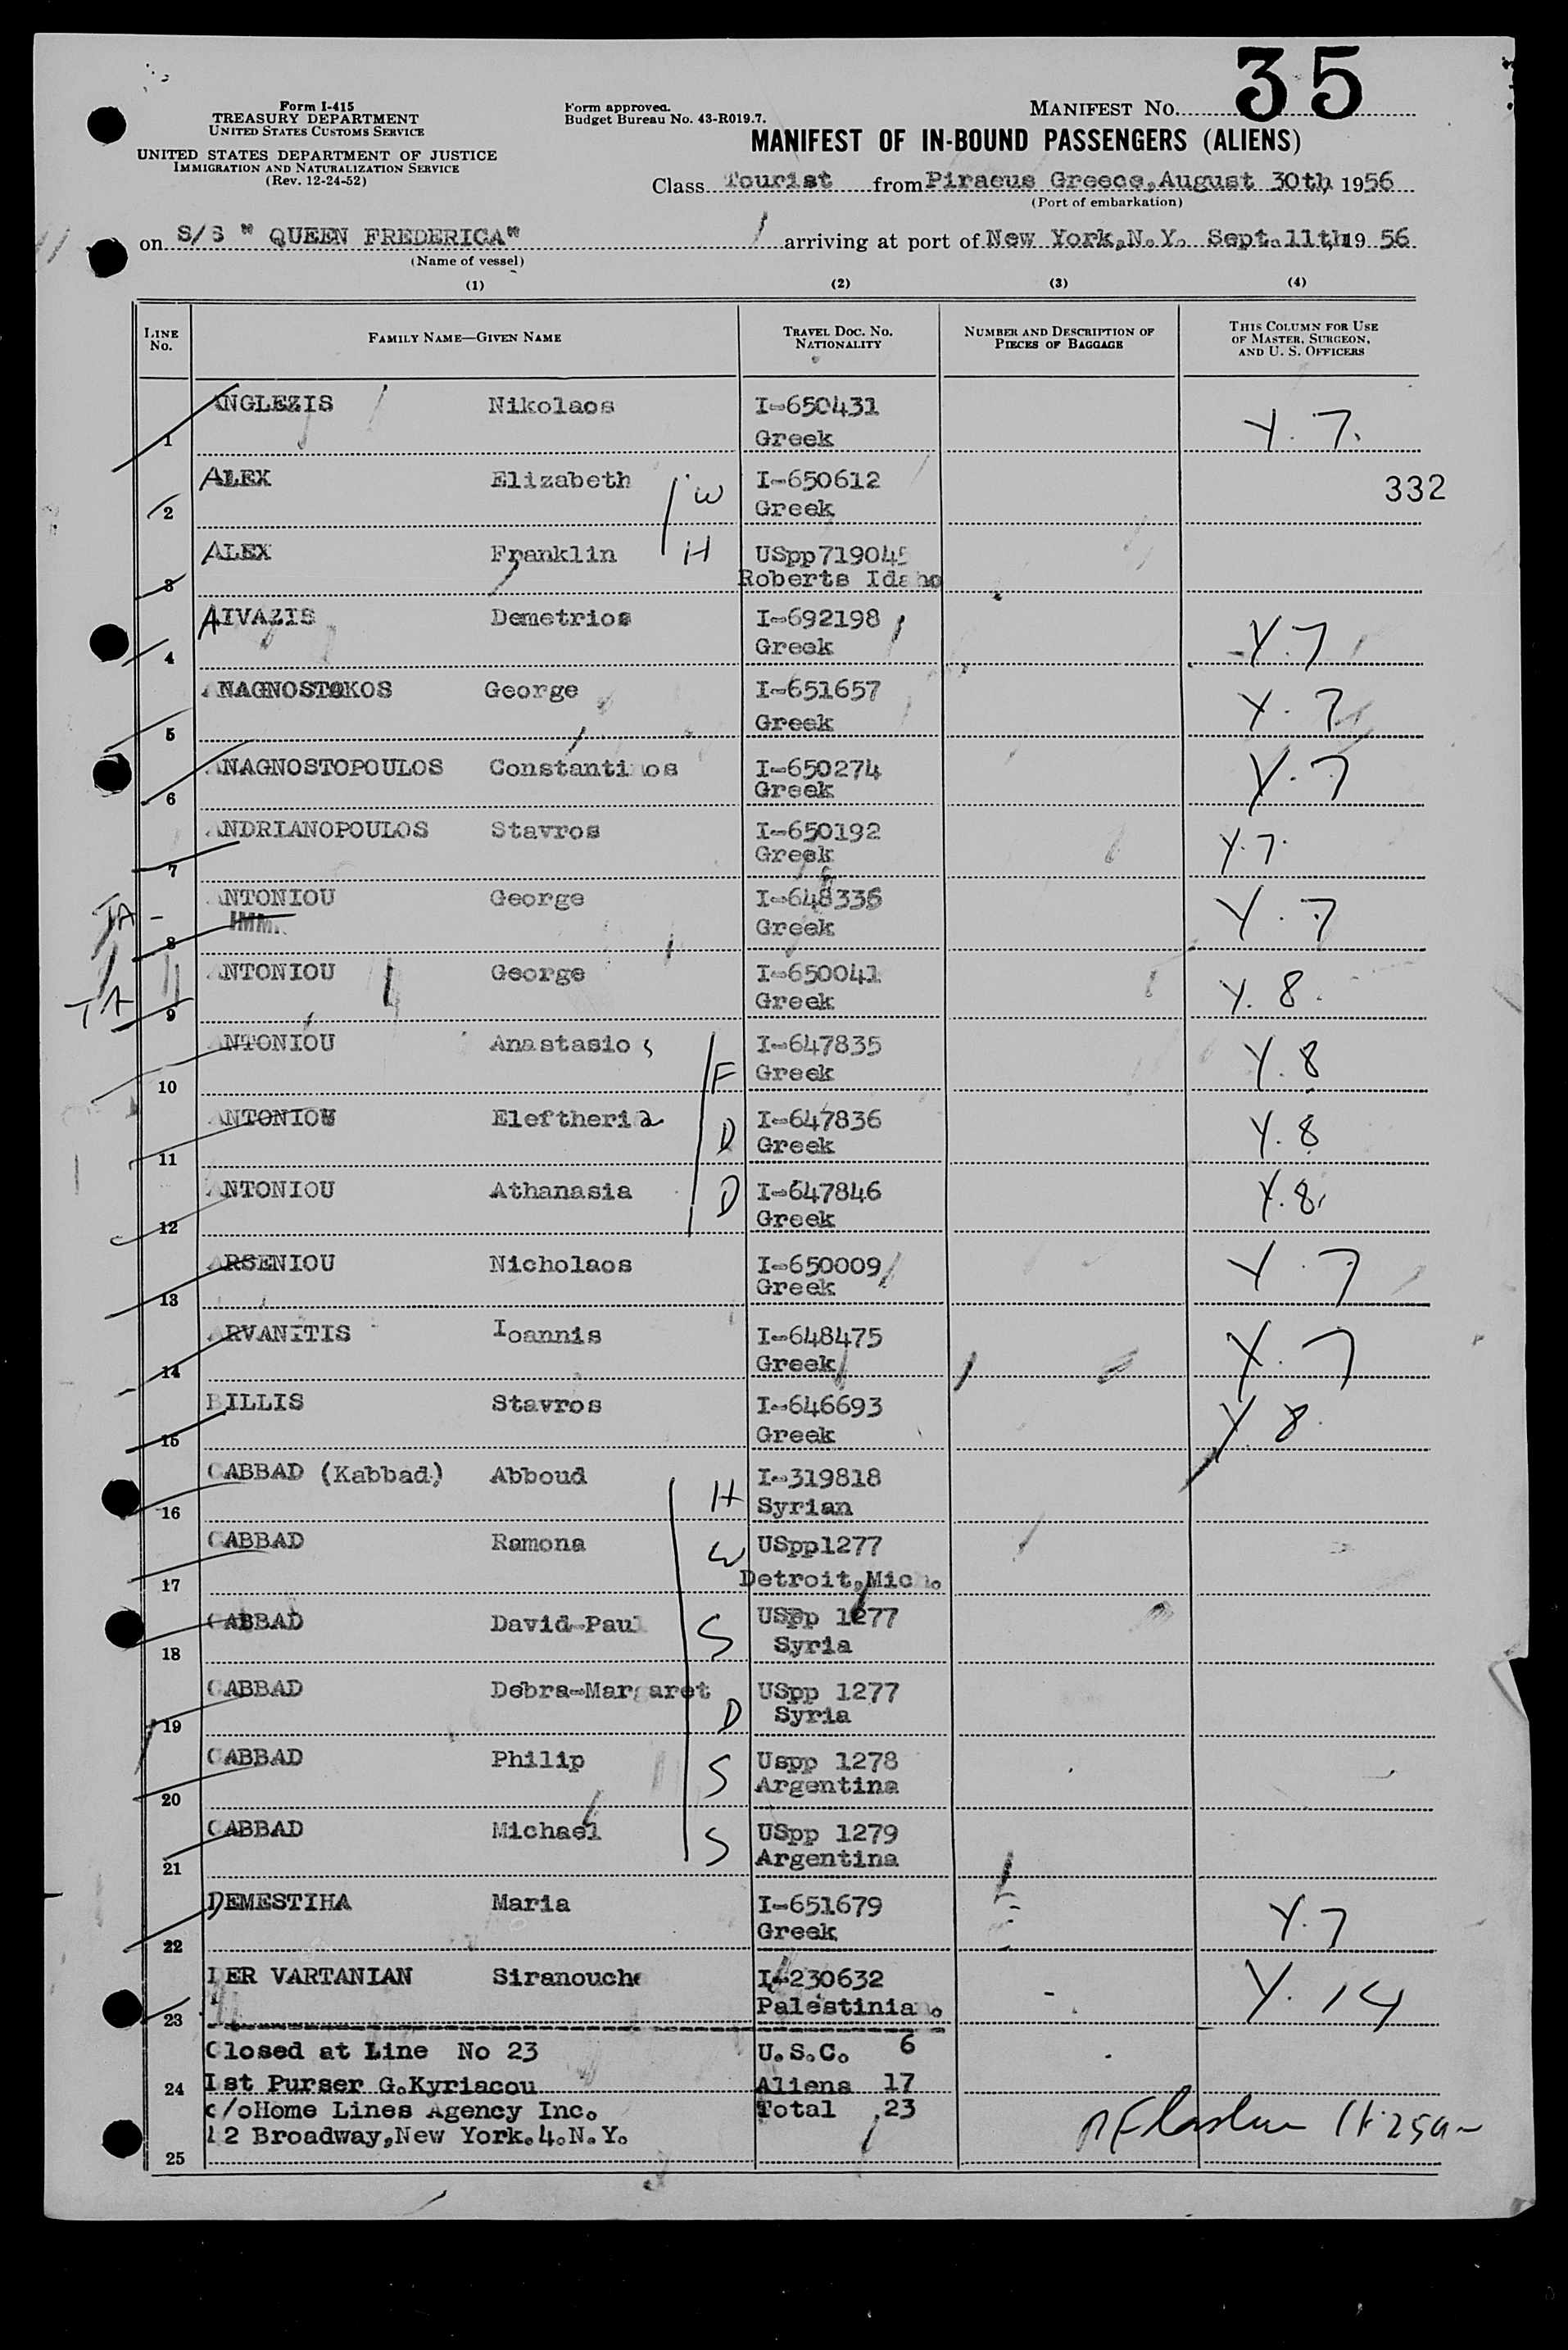 35
Form I-415
TREASURY DEPARTMENT
UNITED STATES CUSTOMS SERVICE
UNITED STATES DEPARTMENT OF JUSTICE
IMMIGRATION AND NATURALIZATION SERVICE
(Rev. 12-24-52)
Form approved.
Budget Bureau No. 43-R019.7.
MANIFEST No.
MANIFEST OF IN-BOUND PASSENGERS (ALIENS)
Class Tourist from Piraeus Greece, August 30th, 1956
(Port of embarkation)
on S/S " QUEEN FREDERICA" arriving at port of New York, N.Y. Sept. 11th, 19 56
(Name of vessel)
(1) (2) (3) (4)
LINE No. FAMILY NAME—GIVEN NAME TRAVEL DOC. No. NATIONALITY NUMBER AND DESCRIPTION OF PIECES OF BAGGAGE THIS COLUMN FOR USE OF MASTER, SURGEON, AND U. S. OFFICERS
1 ANGLEZIS Nikolaos I-650431 Greek Y. 7.
2 ALEX Elizabeth W I-650612 Greek 332
3 ALEX Franklin H USpp719045 Roberts Idaho
4 AIVAZIS Demetrios I-692198 Greek Y.7
5 ANAGNOSTAKOS George I-651657 Greek Y. 7
6 ANAGNOSTOPOULOS Constantinos I-650274 Greek Y.7
7 ANDRIANOPOULOS Stavros I-650192 Greek Y.7.
TA - 8 ANTONIOU IMM. George I-648336 Greek Y. 7
TA 9 ANTONIOU George I-650041 Greek Y. 8.
10 ANTONIOU Anastasios F I-647835 Greek Y. 8
11 ANTONIOU Eleftheria D I-647836 Greek Y. 8
12 ANTONIOU Athanasia D I-647846 Greek Y.8.
13 ARSENIOU Nicholaos I-650009 Greek Y. 7
14 ARVANITIS Ioannis I-648475 Greek Y. 7
15 BILLIS Stavros I-646693 Greek Y 8.
16 CABBAD (Kabbad) Abboud H I-319818 Syrian
17 CABBAD Ramona W USpp1277 Detroit, Mich.
18 CABBAD David-Paul S USpp 1277 Syria
19 CABBAD Debra-Margaret D USpp 1277 Syria
20 CABBAD Philip S Uspp 1278 Argentina
21 CABBAD Michael S USpp 1279 Argentina
22 DEMESTIHA Maria I-651679 Greek Y.7
23 DER VARTANIAN Siranouche I-230632 Palestinian. Y. 14
Closed at Line No 23 U.S.C. 6
24 Ist Purser G.Kyriacou Aliens 17
c/oHome Lines Agency Inc. Total 23
25 42 Broadway, New York.4.N.Y.